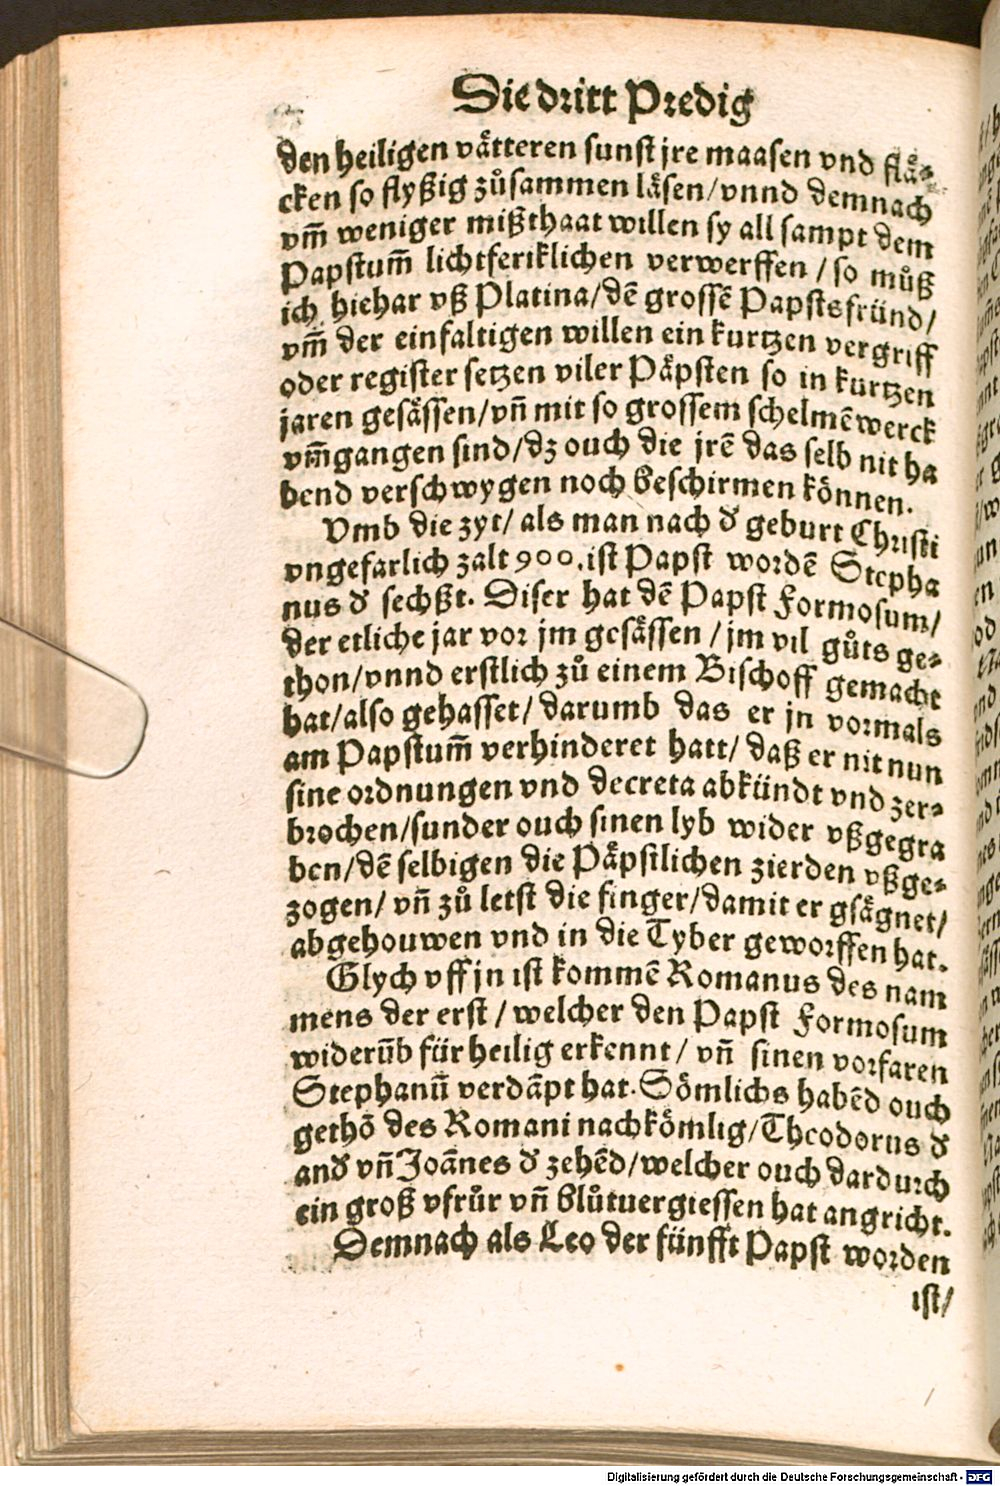 Die dritt Predig
den heiligen våtteren sunst jre maasen vnd flå⸗
cken so flyßig zůsammen låsen/vnnd demnach
vm̃ weniger mißthaat willen sy all sampt dem
Papstum̃ lichtferiklichen verwerffen/so můß
ich hiehar vß Platina/dẽ grossẽ Papstsfründ/
vm̃ der einfaltigen willen ein kurtzen vergriff
oder register setzen viler Påpsten so in kurtzen
jaren gesåssen/vñ mit so grossem schelmẽwerck
vm̃gangen sind/dz ouch die jrẽ das selb nit ha
bend verschwygen noch beschirmen können.
Vmb die zyt/ als man nach d' geburt Christi
vngefarlich zalt 900. ist Papst wordẽ Stepha
nus d' sechßt. Diser hat dẽ Papst Formosum/
der etliche jar vor jm gesåssen/jm vil gůts ge⸗
thon/vnnd erstlich zů einem Bischoff gemacht
hat/also gehasset/darumb das er jn vormals
am Papstum̃ verhinderet hatt/daß er nit nun
sine ordnungen vnd decreta abkündt vnd zer⸗
brochen/sunder ouch sinen lyb wider vßgegra
ben/dẽ selbigen die Påpstlichen zierden vßge⸗
zogen/vñ zů letst die finger/damit er gsågnet/
abgehouwen vnd in die Tyber geworffen hat.
Glych vff jn ist kommẽ Romanus des nam
mens der erst/welcher den Papst Formosum
widerũb für heilig erkennt/vñ sinen vorfaren
Stephanũ verdãpt hat. Sömlichs habẽd ouch
gethõ des Romani nachkömlig/Theodorus d'
and' vñ Joãnes d' zehẽd/welcher ouch dardurch
ein groß vfrůr vñ blůtuergiessen hat angricht.
Demnach als Leo der fünfft Papst worden
ist/
Digitalisierung gefördert durch die Deutsche Forschungsgemeinschaft - DFG